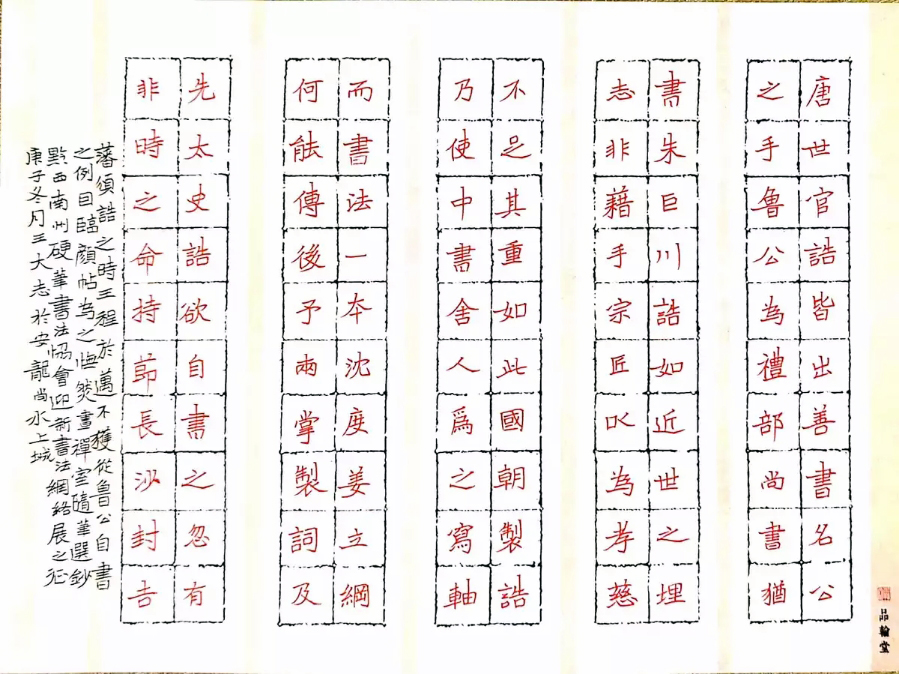 唐世官誥皆出善書名公
之手魯公為禮部尚書猶
書朱巨川誥如近世之埋
志非藉手宗匠以為孝慈
不足其重如此國朝製誥
乃使中書舍人爲之寫軸
而書法一本沈度姜立綱
何能傳後予兩掌製詞及
先太史誥欲自書之忽有
非時之命持節長沙封吉
藩須誥之時王程於邁不獲從魯公自書
之例目臨顏帖為之憮然畫禪室隨筆選鈔
黔西南州硬筆書法協會迎新書法網絡展之征
庚子冬月王大志於安龍尚水上城
品翰堂